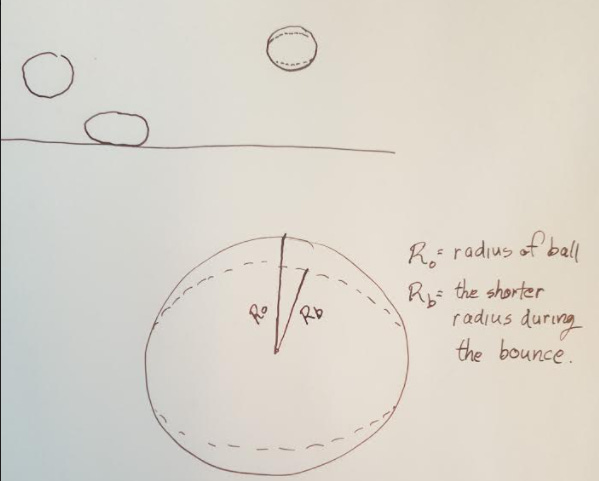 R₀ = radius of ball
R_b = the shorter
radius during
the bounce.
R₀
R_b